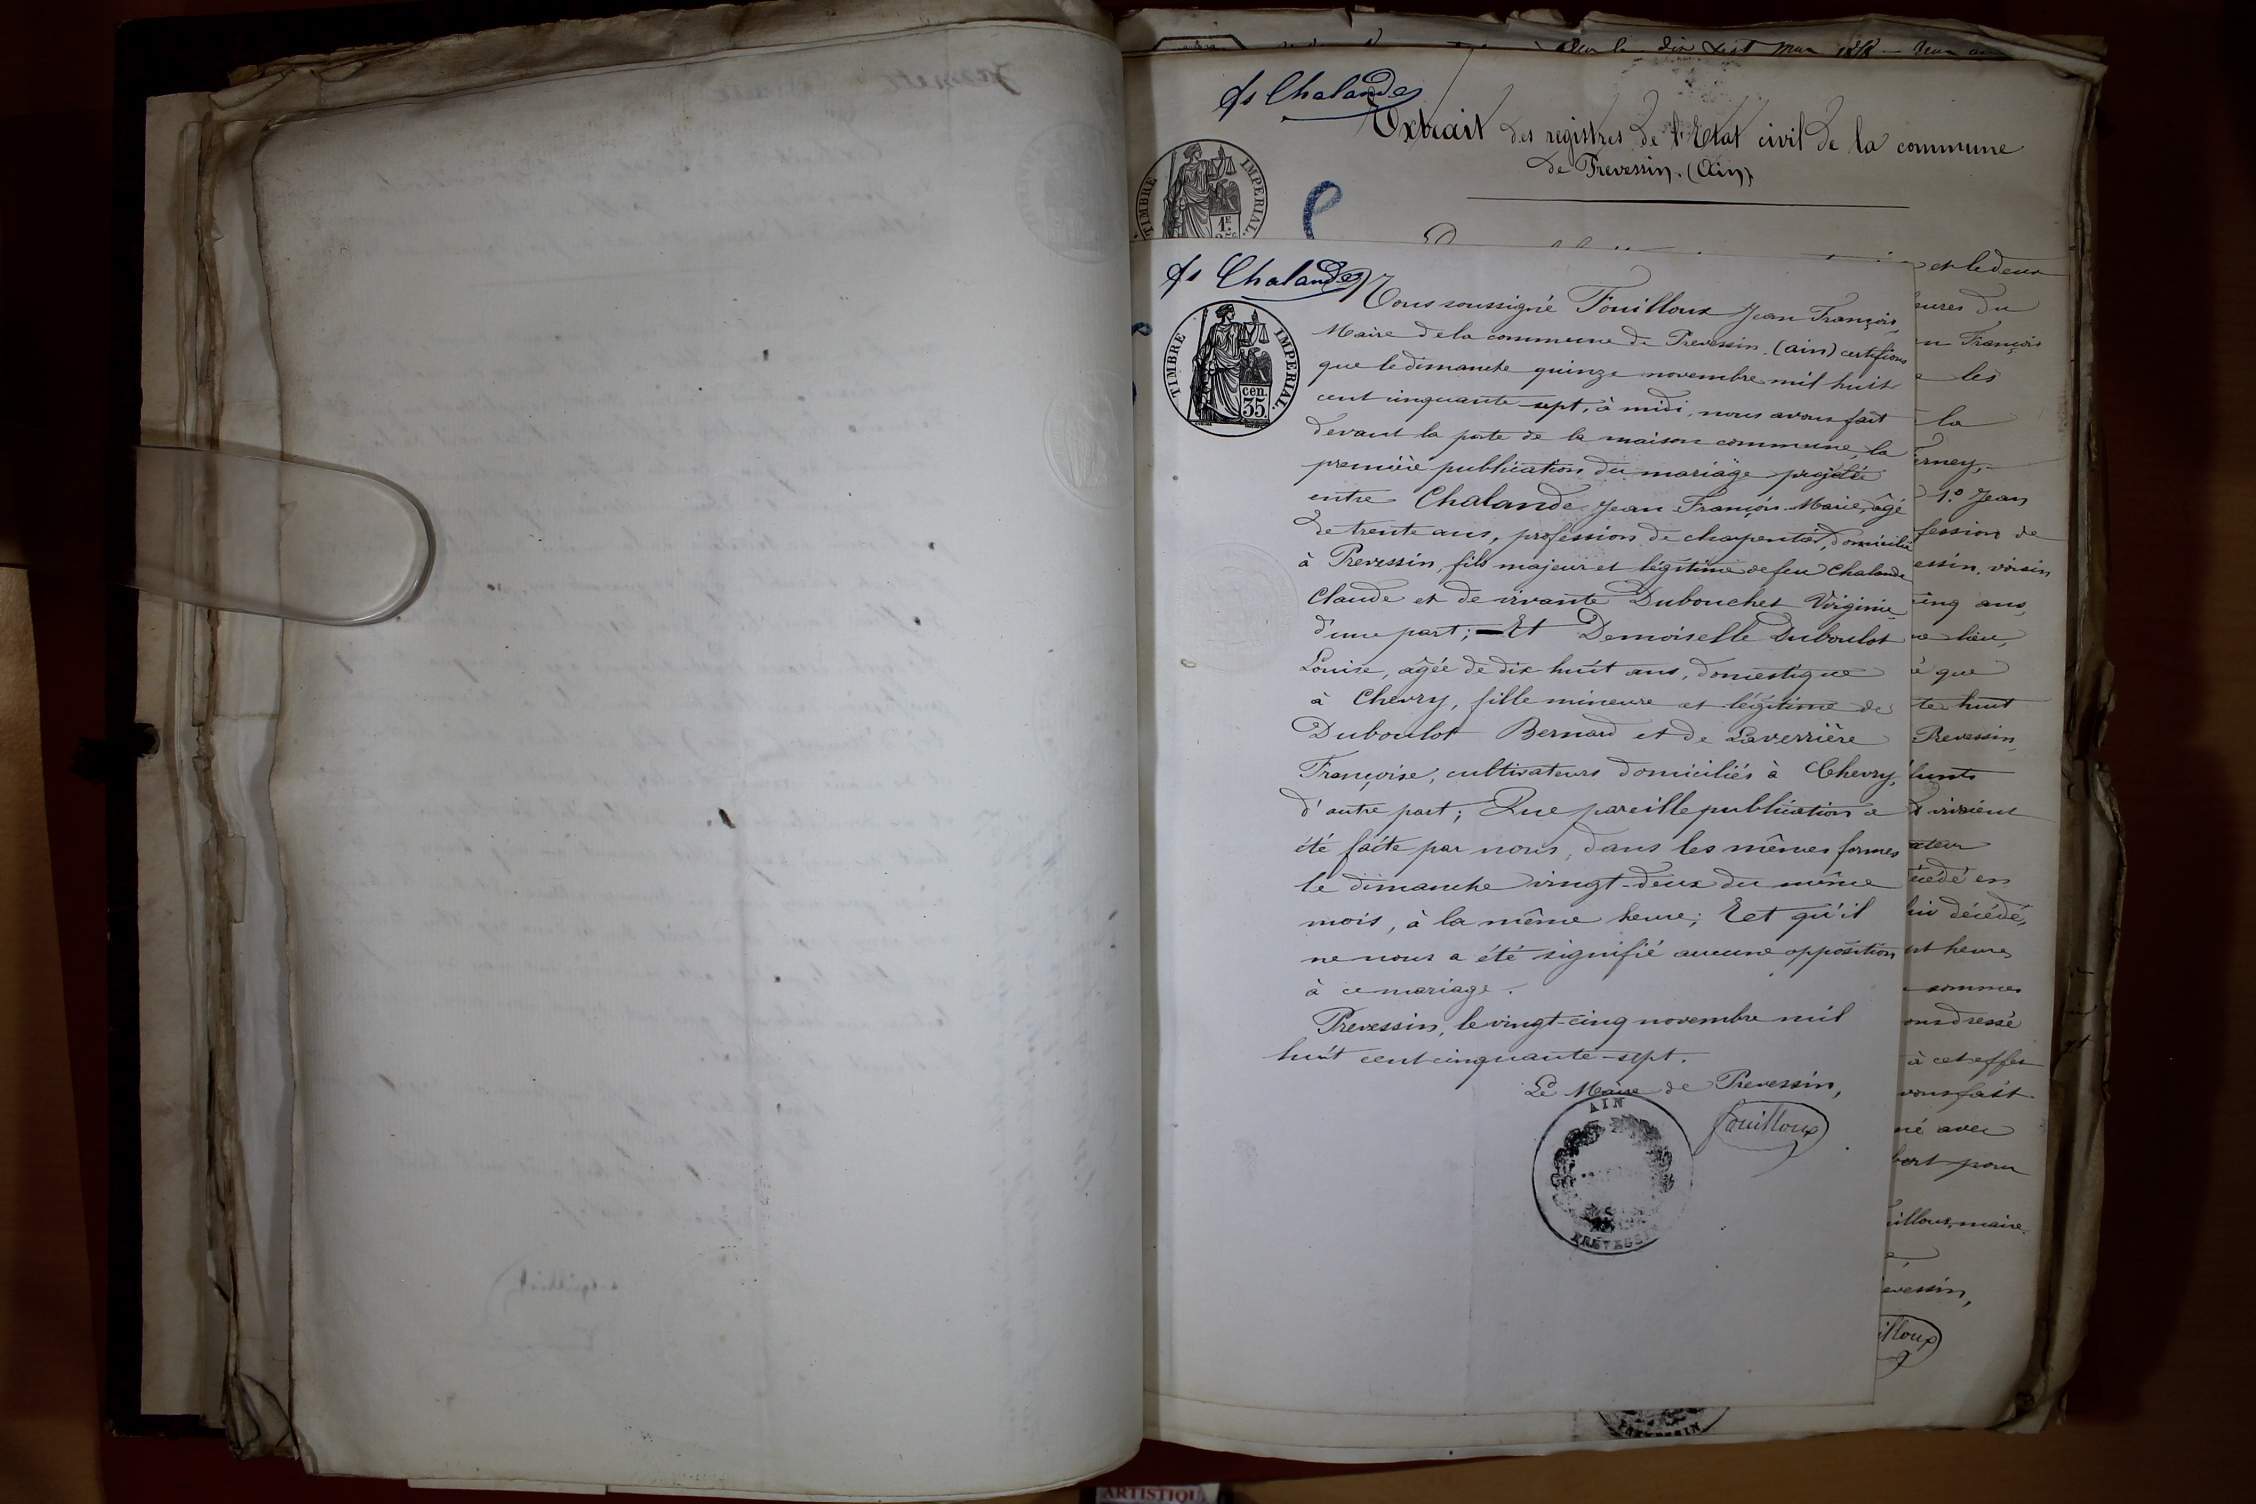 fs Chalande
Extrait des registres de l'Etat civil de la commune
de Prevessin. (Ain)
TIMBRE IMPERIAL
1F
fs Chalande
Nous soussigné Fouilloux Jean François,
Maire de la commune de Prevessin. (ain) certifions
que le dimanche quinze novembre mil huit
cent cinquante-sept, à midi, nous avons fait
devant la porte de la maison commune, la
première publication du mariage projeté
entre Chalande Jean-François-Marie, âgé
de trente ans, profession de charpentier, domicilié
à Prevessin, fils majeur et légitime de feu Chalande
Claude et de vivante Dubouchet Virginie
d'une part; — Et Demoiselle Duboulot
Louise, agée de dix-huit ans, domestique
à Chevry, fille mineure et légitime de
Duboulot Bernard et de Laverrière
Françoise, cultivateurs domiciliés à Chevry,
d'autre part; Que pareille publication a
été faite par nous, dans les mêmes formes
le dimanche vingt-deux du même
mois, à la même heure; Eet qu'il
ne nous a été signifié aucune opposition
à ce mariage.
Prevessin, le vingt-cinq novembre mil
huit cent cinquante-sept.
Le Maire de Prevessin,
Fouilloux
TIMBRE IMPERIAL.
cen.
35.
AIN
PREVESSIN
et le deux
eures du
François
les
la
erney,
1.° Jean
fession de
essin, voisin
cinq ans,
lieu,
que
te huit
Prevessin,
vivaient
ateur
cédé en
décédé,
heures
sommes
ons dressé
à cet effet
vons fait
né avec
bert pour
illoux, maire.
evessin,
illoux
PREVESSIN
ARTISTIQU